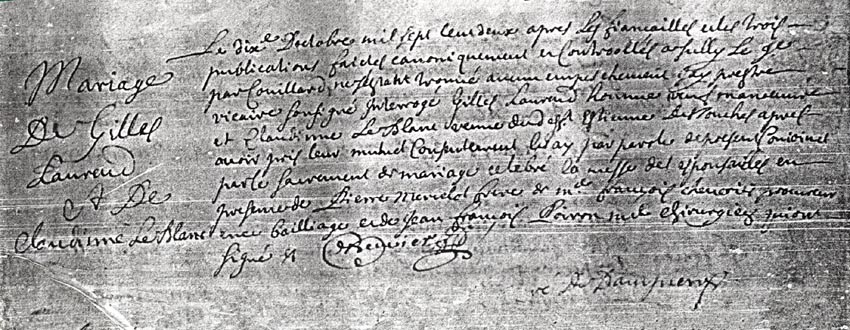 Mariage
De Gilles
Laurend
Et De
Claudinne Le Blanc
Le dixe Doctobre mil sept cent deux apres les fiancailles et les trois
publications faictes canoniquement et Controollés a Sully Le 9e
par Couillard, ne sestant trouué aucun empeschement Jay prestre
vicaire soussigné Interrogé Gilles Laurend homme manoeuure
et Claudinne Le Blanc veuue du d Estienne Des apres
auoir pris leur mutuel Consentement les ay par parole de present Conioinct
par le sacrement de mariage et celebré la messe des espousailles en
presence de Pierre frere de me françois procureur
en ce bailliage et de Jean françois Poiron me Chirurgien qui ont
signé